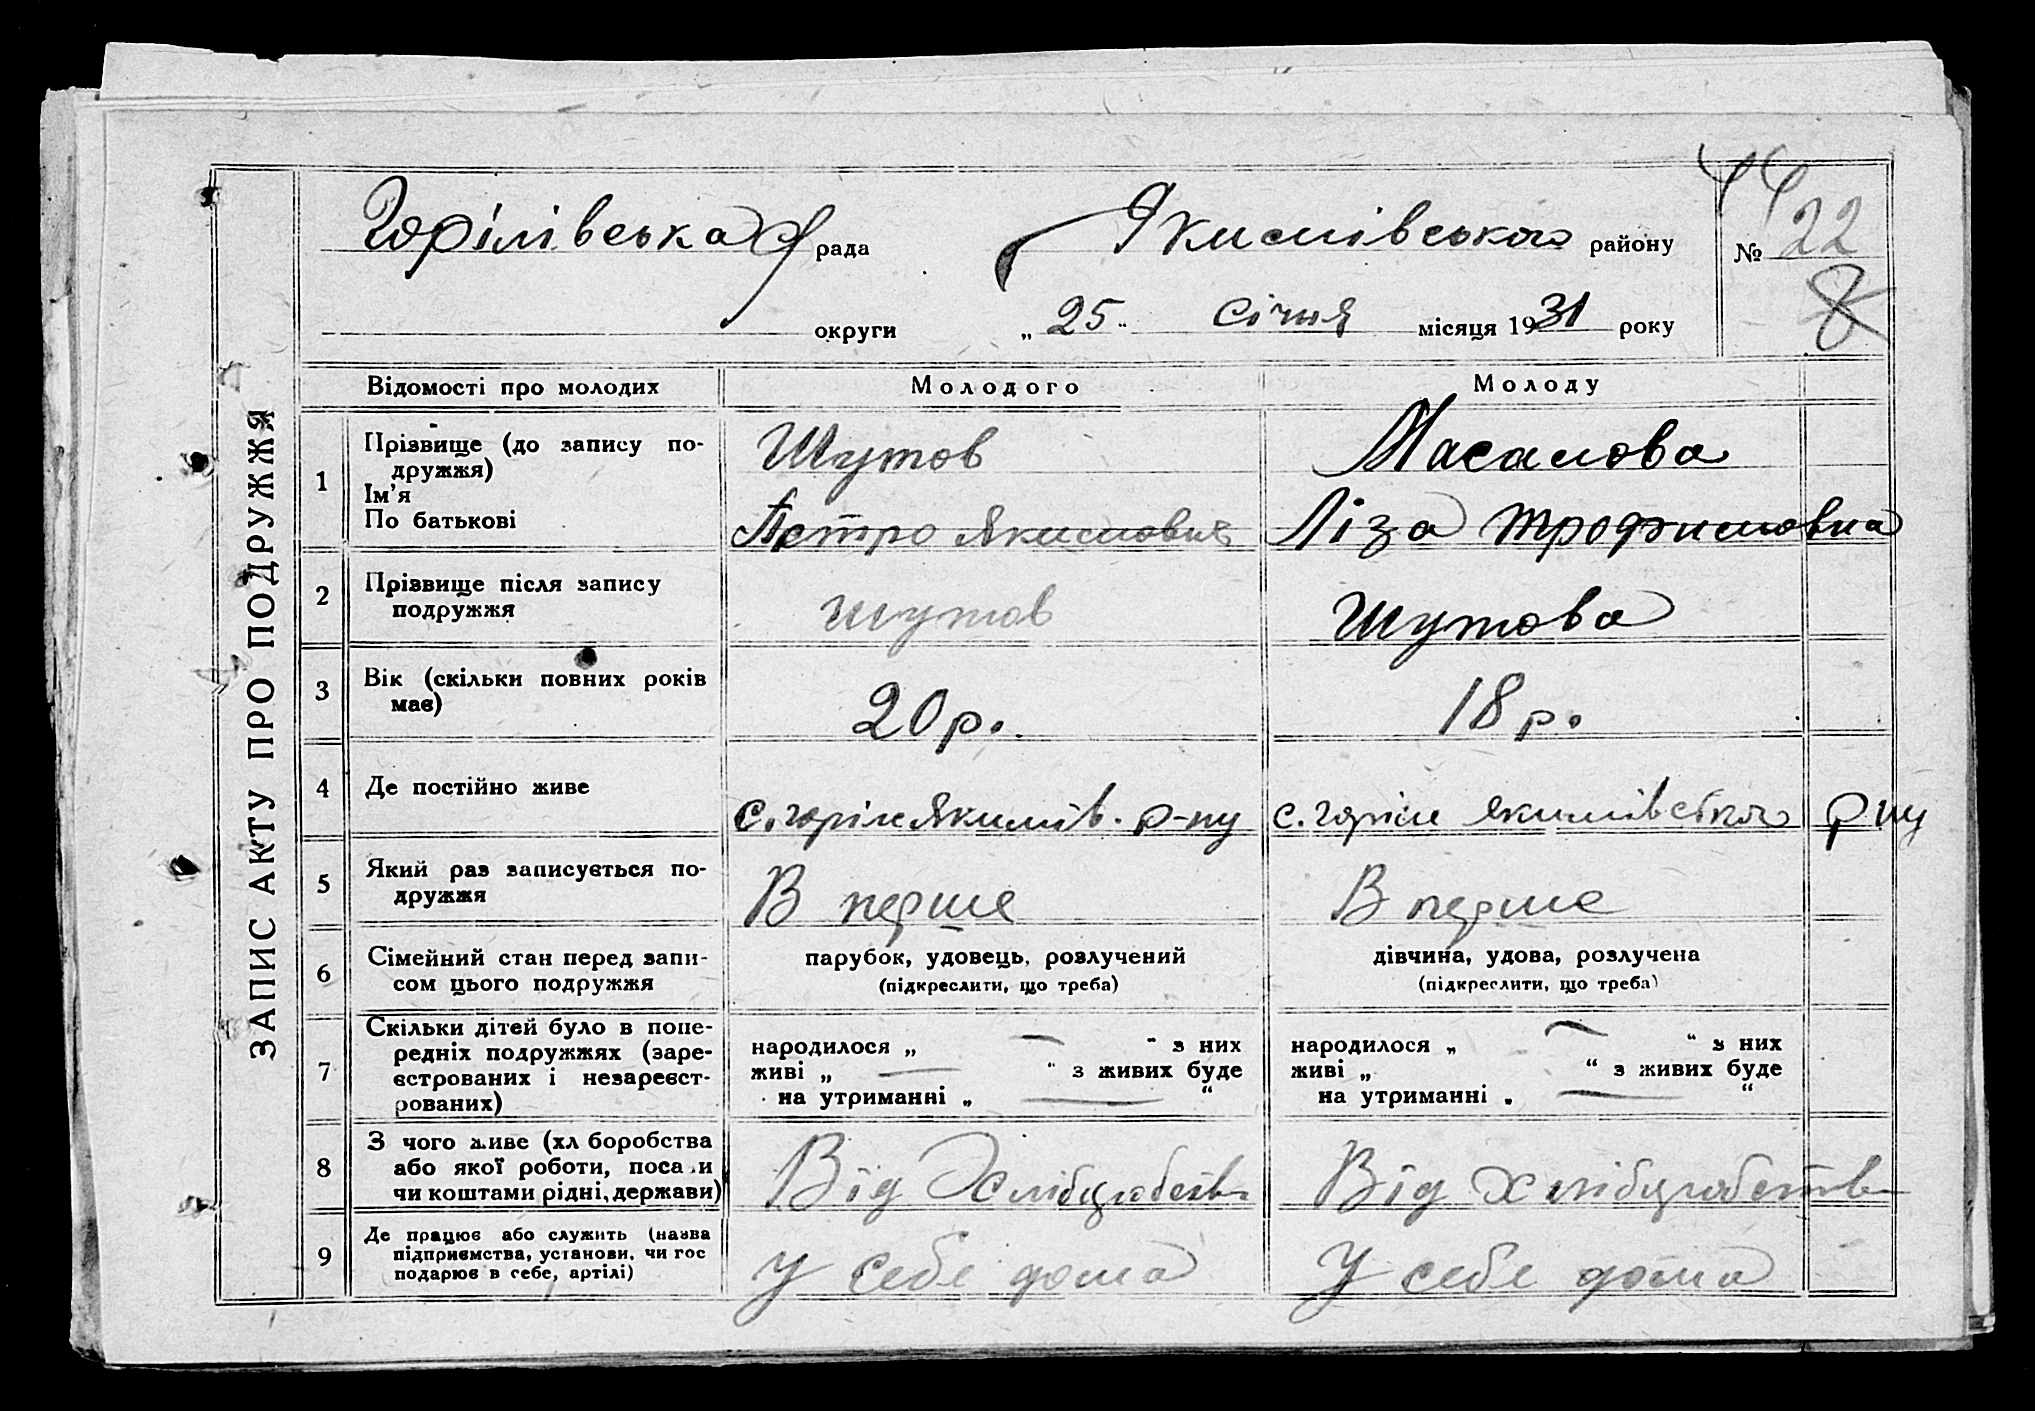 ЗАПИС АКТУ ПРО ПОДРУЖЖЯ
Горілівська рада Якимівського району № 22
округи „25" Січня місяця 1931 року
Відомості про молодих Молодого Молоду
1 Прізвище (до запису по-
дружжя) Шутов Масалова
Ім'я
По батькові Петро Якимович Ліза Трофимовна
2 Прізвище після запису
подружжя Шутов Шутова
3 Вік (скільки повних років
має) 20 р. 18 р.
4 Де постійно живе с. Горіле Якимів. р-ну с. Горіле Якимівського р-ну
5 Який раз записується по-
дружжя В перше В перше
6 Сімейний стан перед запи-
сом цього подружжя
парубок, удовець, розлучений
(підкреслити, що треба)
дівчина, удова, розлучена
(підкреслити, що треба)
7 Скільки дітей було в попе-
редніх подружжях (заре-
єстрованих і незареєст-
рованих)
народилося „ — " з них
живі „ — " з живих буде
на утриманні „ — "
народилося „ — " з них
живі „ " з живих буде
на утриманні „ — "
8 З чого живе (хліборобства
або якої роботи, посади
чи коштами рідні, держави)
Від Хлібцробств Від Хлібцробств
9 Де працює або служить (назва
підприємства, установи, чи гос
подарює в себе, артілі)
У себе дома У себе дома